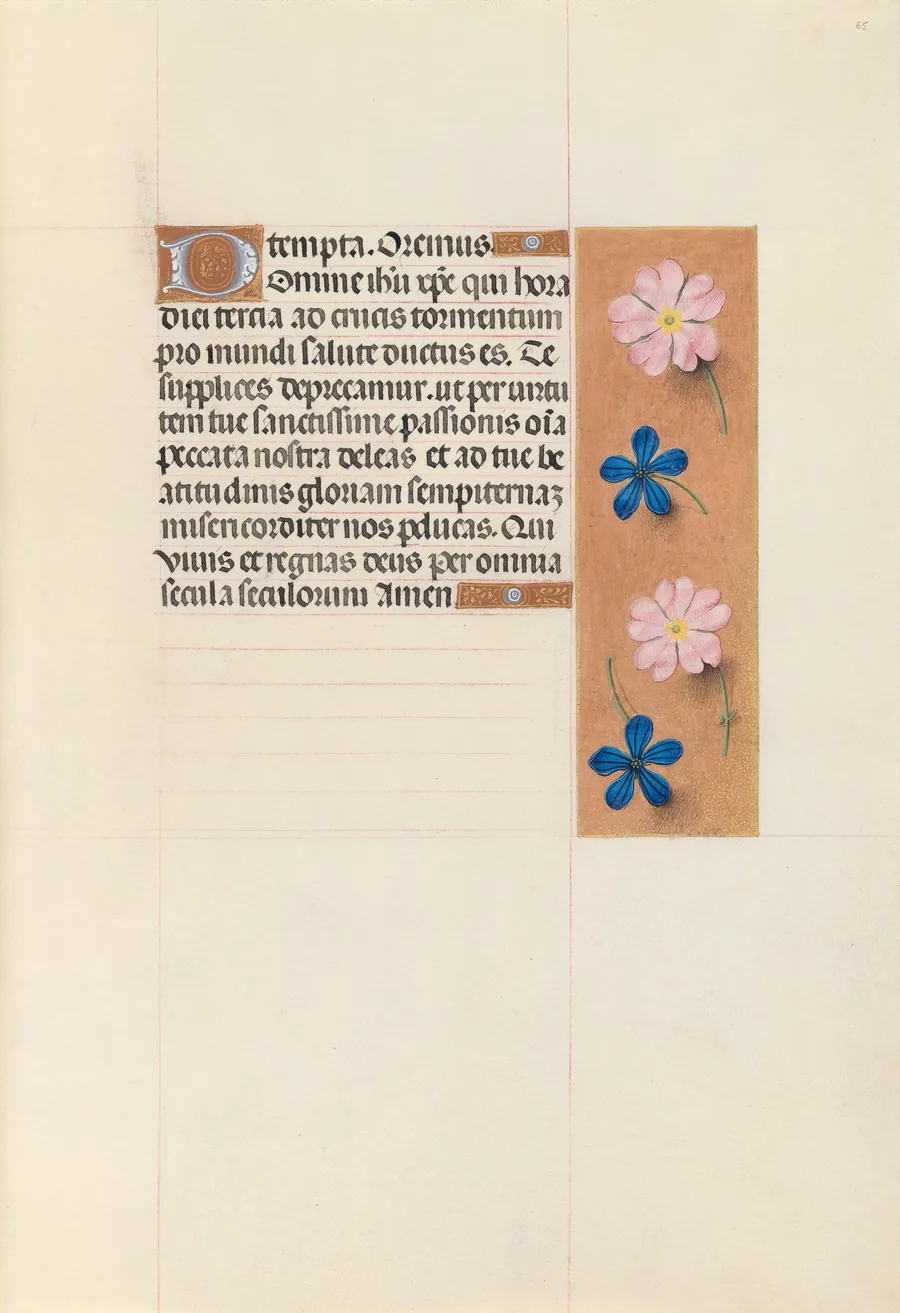 65
tempta. Oremus.
Domine ihū xp̄e qui hora
diei tercia ad crucis tormentum
pro mundi salute ductus es. Te
supplices deprecamur. ut per uirtu
tem tue sanctissime passionis oīa
peccata nostra deleas et ad tue be
atitudinis gloriam sempiternaꝫ
misericorditer nos ꝑducas. Qui
viuis et regnas deus per omnia
secula seculorum Amen